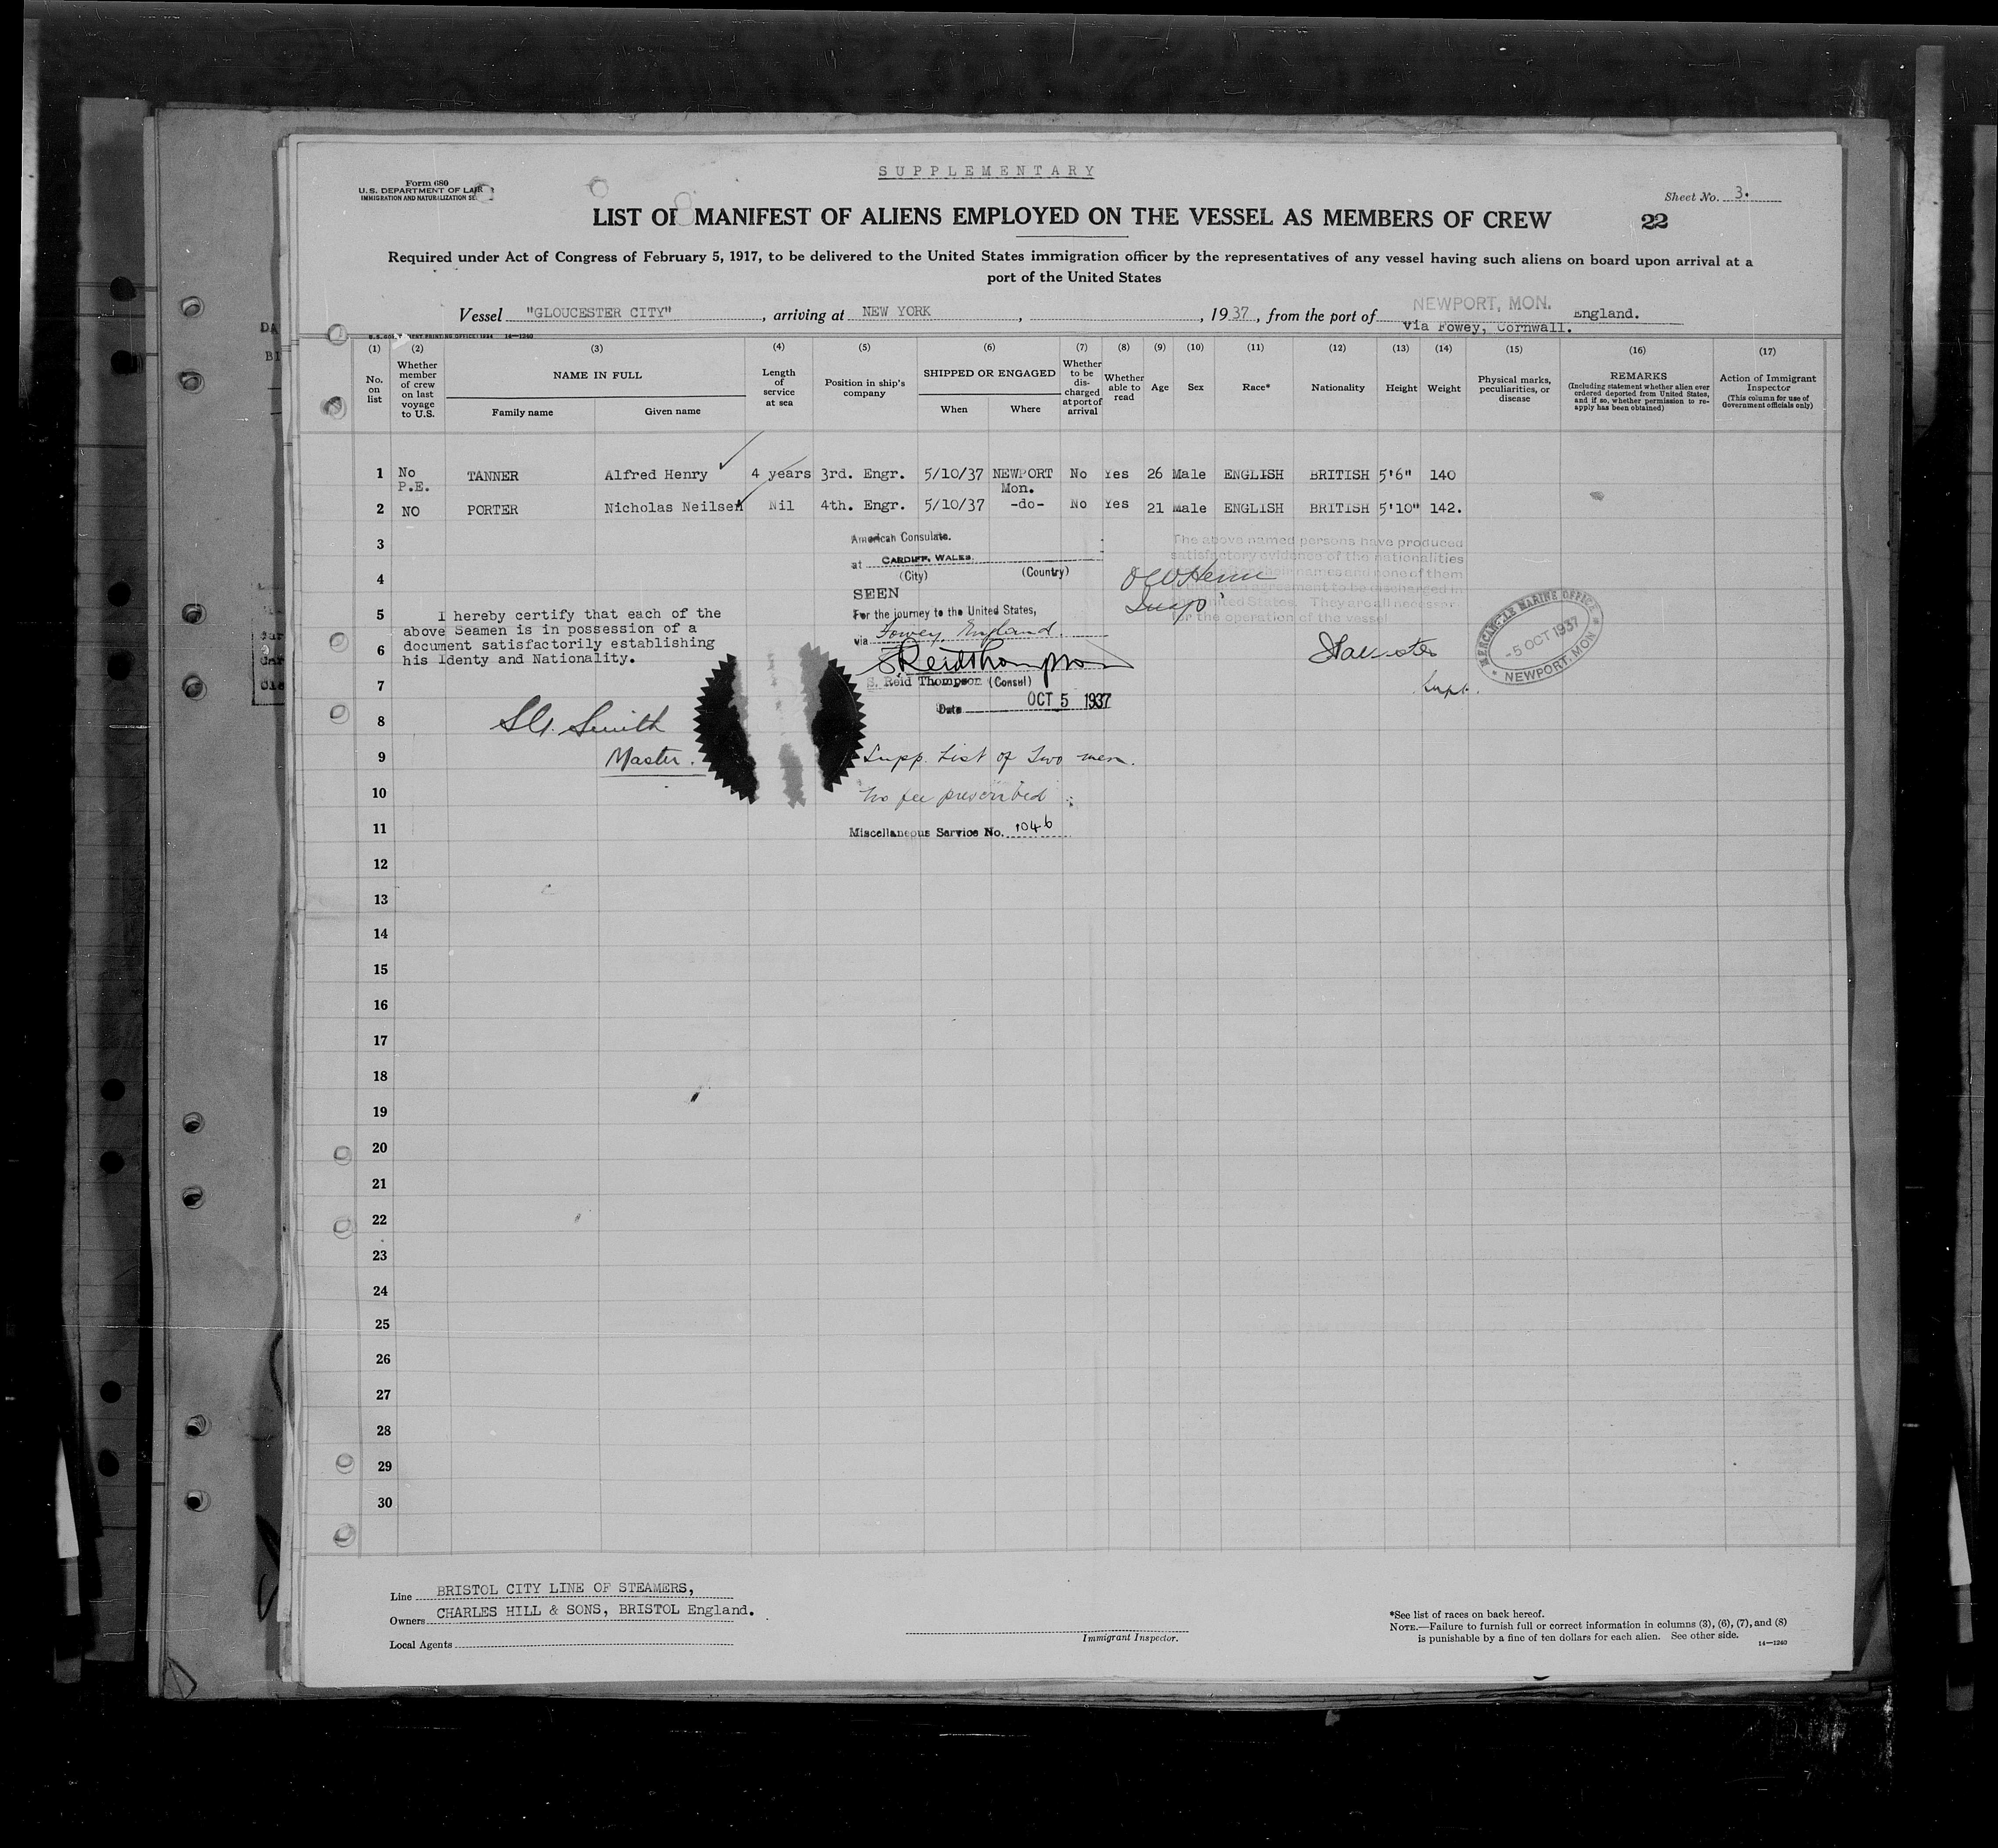 SUPPLEMENTARY
Form 680
U.S. DEPARTMENT OF LA
IMMIGRATION AND NATURALIZATION SE
Sheet No. 3.
LIST OF MANIFEST OF ALIENS EMPLOYED ON THE VESSEL AS MEMBERS OF CREW
22
Required under Act of Congress of February 5, 1917, to be delivered to the United States immigration officer by the representatives of any vessel having such aliens on board upon arrival at a
port of the United States
Vessel "GLOUCESTER CITY", arriving at NEW YORK, , 1937, from the port of NEWPORT, MON. England.
via Fowey, Cornwall.
(1) (2) (3) (4) (5) (6) (7) (8) (9) (10) (11) (12) (13) (14) (15) (16) (17)
No. on list
Whether member of crew on last voyage to U.S.
NAME IN FULL
Family name
Given name
Length of service at sea
Position in ship's company
SHIPPED OR ENGAGED
When
Where
Whether to be discharged at port of arrival
Whether able to read
Age
Sex
Race*
Nationality
Height
Weight
Physical marks, peculiarities, or disease
REMARKS
(Including statement whether alien ever ordered deported from United States, and if so, whether permission to re-apply has been obtained)
Action of Immigrant Inspector
(This column for use of Government officials only)
1 No TANNER Alfred Henry 4 years 3rd. Engr. 5/10/37 NEWPORT No Yes 26 Male ENGLISH BRITISH 5'6" 140
P.E. Mon.
2 NO PORTER Nicholas Neilsen Nil 4th. Engr. 5/10/37 -do- No Yes 21 Male ENGLISH BRITISH 5'10" 142.
3
American Consulate.
at CARDIFF, WALES.
(City) (Country)
SEEN
For the journey to the United States,
via Fowey, England.
S Reid Thompson
S. Reid Thompson (Consul)
Date OCT 5 1937
The above named persons have produced
satisfactory evidence of the nationalities
after their names and none of them
agreement to be discharged in
United States. They are all necessary
for the operation of the vessel
4
5
I hereby certify that each of the
above Seamen is in possession of a
document satisfactorily establishing
his Identy and Nationality.
6
7
Supt.
MERCANTILE MARINE OFFICE
-5 OCT 1937
NEWPORT, MON
8
Smith
9
Master.
Supp. List of Two men.
10
No fee prescribed
11
Miscellaneous Service No. 1046
12
13
14
15
16
17
18
19
20
21
22
23
24
25
26
27
28
29
30
Line BRISTOL CITY LINE OF STEAMERS,
Owners CHARLES HILL & SONS, BRISTOL England.
Local Agents
Immigrant Inspector.
*See list of races on back hereof.
NOTE.—Failure to furnish full or correct information in columns (3), (6), (7), and (8)
is punishable by a fine of ten dollars for each alien. See other side.
14—1240